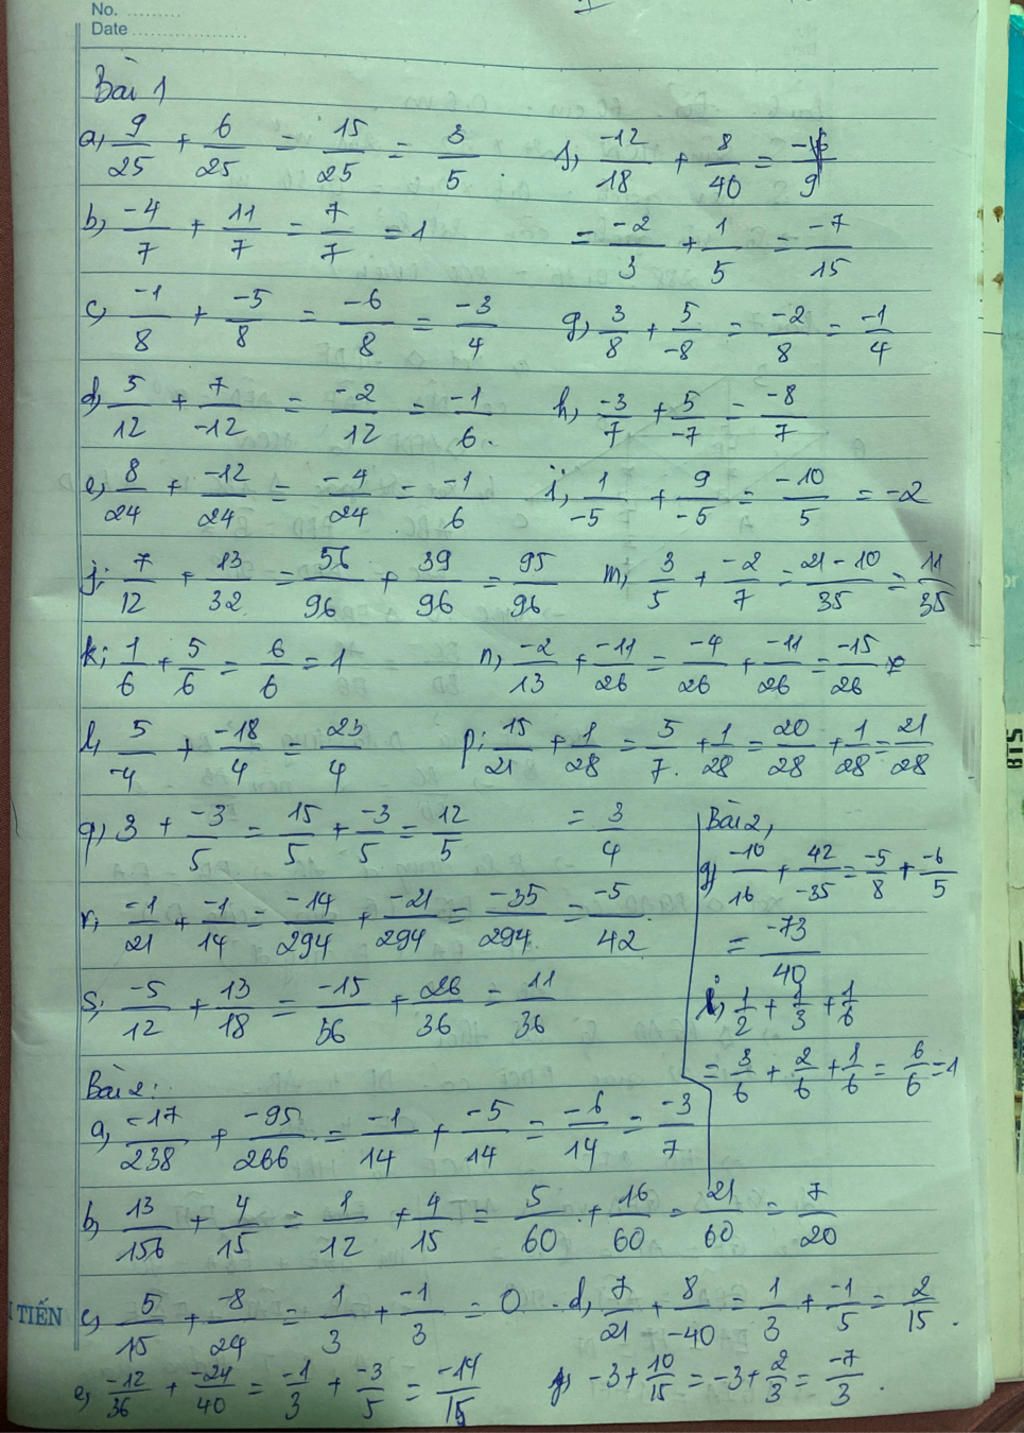 No. .........
Date ....................
Bài 1
a, 9/25 + 6/25 = 15/25 = 3/5. f, -12/18 + 8/40 = 9
= -2/3 + 1/5 = -7/15
b, -4/7 + 11/7 = 7/7 = 1
c, -1/8 + -5/8 = -6/8 = -3/4 g, 3/8 + 5/-8 = -2/8 = -1/4
d, 5/12 + 7/-12 = -2/12 = -1/6. h, -3/7 + 5/-7 = -8/7
e, 8/24 + -12/24 = -4/24 = -1/6 i, 1/-5 + 9/-5 = -10/5 = -2
j; 7/12 + 13/32 = 56/96 + 39/96 = 95/96 m, 3/5 + -2/7 = 21-10/35 = 11/35
k; 1/6 + 5/6 = 6/6 = 1 n, -2/13 + -11/26 = -4/26 + -11/26 = -15/26
l, 5/-4 + -18/4 = 23/4 p; 15/21 + 1/28 = 5/7. + 1/28 = 20/28 + 1/28 = 21/28
= 3/4
q, 3 + -3/5 = 15/5 + -3/5 = 12/5
r, -1/21 + -1/14 = -14/294 + -21/294 = -35/294. = -5/42.
s; -5/12 + 13/18 = -15/36 + 26/36 = 11/36
Bài 2,
g, -10/16 + 42/-35 = -5/8 + -6/5
= -73/40
i, 1/2 + 1/3 + 1/6
= 3/6 + 2/6 + 1/6 = 6/6 = 1
Bài 2:
a, -17/238 + -95/266 = -1/14 + -5/14 = -6/14 = -3/7
b, 13/156 + 4/15 = 1/12 + 4/15 = 5/60 + 16/60 = 21/60 = 7/20
c, 5/15 + -8/24 = 1/3 + -1/3 = 0 . d, 7/21 + 8/-40 = 1/3 + -1/5 = 2/15.
e, -12/36 + -24/40 = -1/3 + -3/5 = -14/15 f, -3 + 10/15 = -3 + 2/3 = -7/3.
TIẾN
BTS